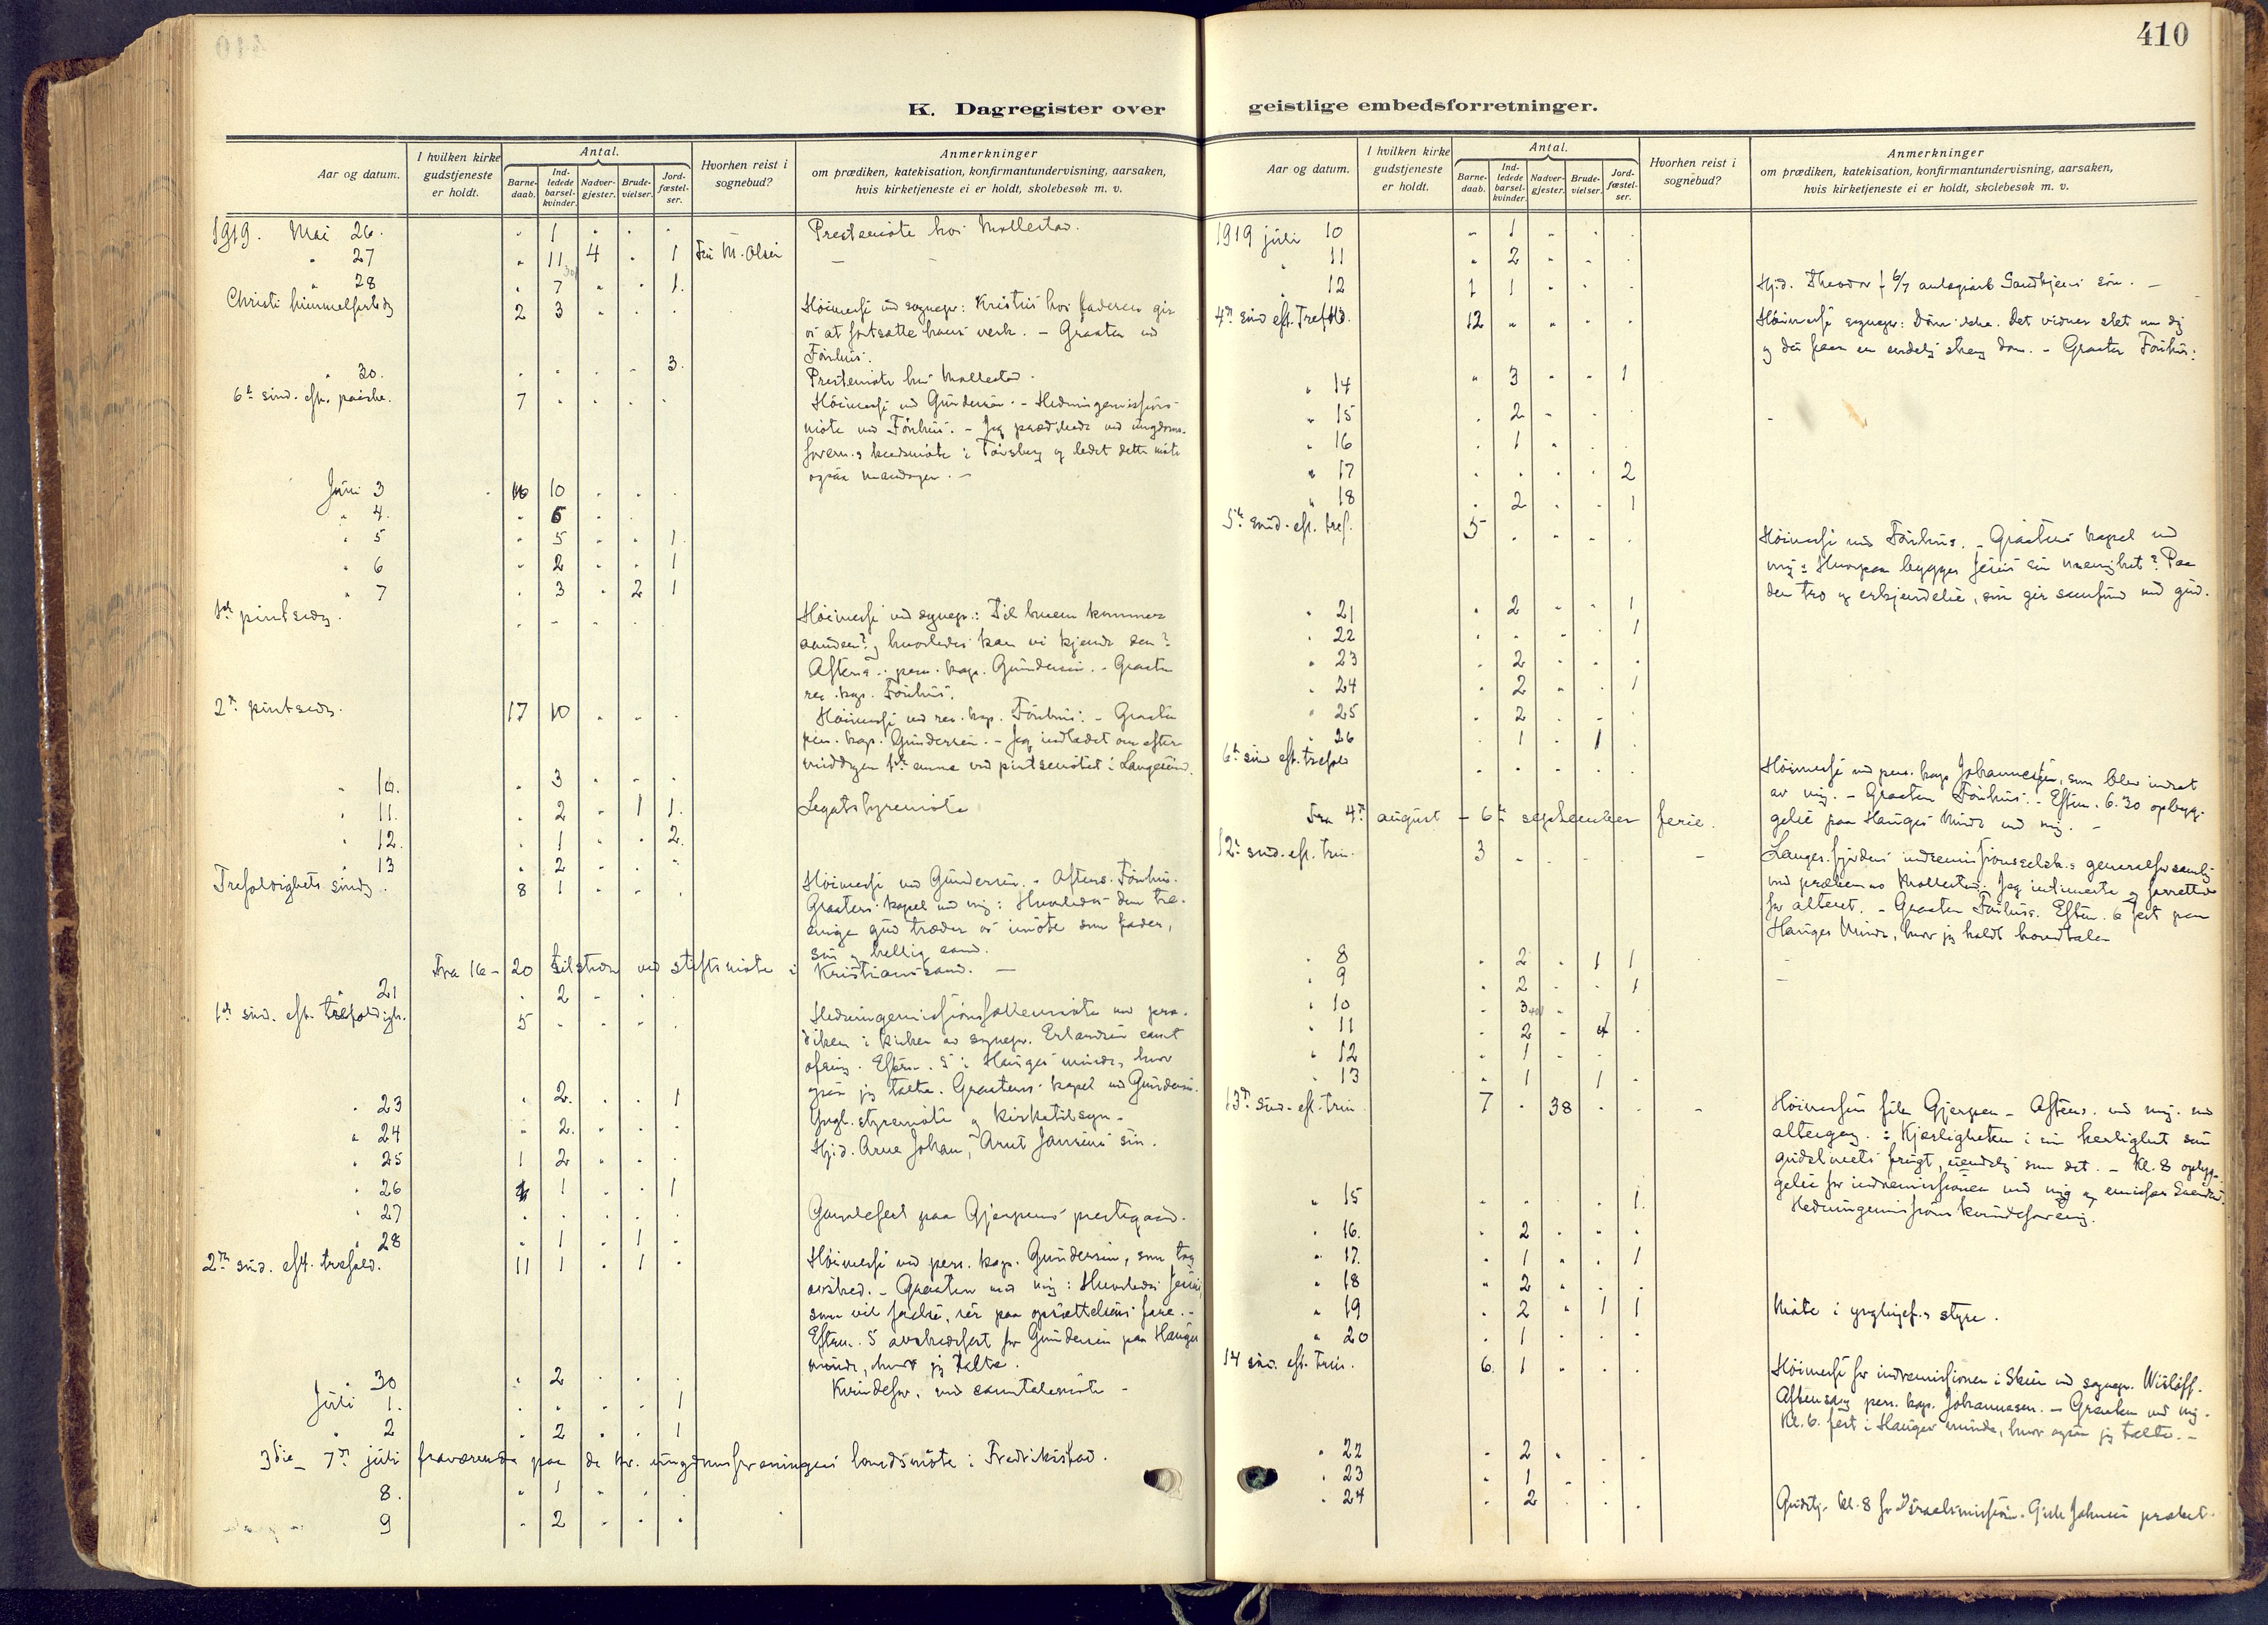 410
K. Dagregister over geistlige embedsforretninger.
Aar og datum. I hvilken kirke gudstjeneste er holdt. Antal. Barnedaab. Indledede barselkvinder. Nadvergjester. Brudevielser. Jordfæstelser. Hvorhen reist i sognebud? Anmerkninger om prædiken, katekisation, konfirmantundervisning, aarsaken, hvis kirketjeneste ei er holdt, skolebesøk m. v.
1919. Mai 26. " 1 " " " Prestemøte hos Mollestad.
" 27 " 11 4 " 1 Fru M. Olsen
" 28 " 7 " " 1.
Christi himmelfartsdg 2 3 " " " Höimesse ved sognepr: Kristus hos faderen gir
os at fortsætte hans verk. – Graaten ved
Fönhus.
" 30. " " " " 3. Prestemöte hos Mollestad.
6te sönd. eft. paaske. 7 " " " " Höimesse ved Gundersen. – Hedningemissions-
möte ved Fönhus. – Jeg prædikede ved ungdoms-
foren.s kredsmöte i Tönsberg og ledet dette möte
ogsaa mandagen. –
Juni 3 10 " " "
" 4. " 6 " "
" 5 " 5 " " 1.
" 6 " 2 " " 1
" 7 " 3 " 2 1
1ste pintsedg. " " " " Höimesse ved sognepr.: Til hvem kommer
aanden? og hvorledes kan vi kjende den?
Aftens. pers. kap. Gundersen. – Graaten
res. kap. Fönhus.
2den pintsedg. 17 10 " " " Höimesse ved res. kap. Fönhus. – Graaten
pers. kap. Gundersen. – Jeg indledet om efter-
middagen 1ste emne ved pintsemötet i Langesund.
" 10. " 3 " " "
" 11. " 2 " 1 1. Legatstyremöte
" 12. " 1 " " 2.
" 13 " 2 " "
Trefoldighets söndg. 8 1 " " " Höimesse ved Gundersen. – Aftens. Fönhus.
Graatens kapel ved mig: Hvorledes den tre-
enige gud træder os imöte som fader,
sön og hellig aand.
Fra 16 – 20 tilstede ved stiftsmöte i Kristianssand. –
" 21 " 2 " "
1ste sönd. eft. trefoldigh. 5 " " " " Hedningemissionsfællesmöte med præ-
diken i kirken av sognepr. Erlandsen samt
ofring. Efterm. 5 i Hauges minde, hvor
ogsaa jeg talte. Graatens kapel ved Gundersen.
" 23 " 2. " " 1 Yngl. styremöte og kirketilsyn.
" 24 " 2. " " "
" 25 1 2 " " " Hj.d. Arne Johan, Arnt Jansens sön.
" 26 1 " " 1
" 27 " " " " Gamlefest paa Gjerpens prestegaard.
" 28 " 1 " 1 "
2den sönd. eft. trefold. 11 1 " 1 " Höimesse ved pers. kap. Gundersen, som tog
avsked. – Graaten ved mig: Hvorledes Jesus,
som vil frelse, ser paa opsættelsens fare. –
Efterm. 5 avskedsfest for Gundersen paa Hauges
minde, hvor jeg talte.
" 30 " 2 " " " Kvindefor. med samtalemöte –
Juli 1. " " " " 1
" 2 " 2 " " 1
3die – 7de juli fraværende paa de kr. ungdomsforeningers landsmöte i Fredrikstad.
8. " 1 " " "
9 " 2 " " "
1919 juli 10 " 1 " " "
" 11 " 2 " " "
" 12 1 1 " " " Hj.d. Theodor f. 6/7 Sandkjens sön. –
4de sönd eft. Tref. 13. 12 " " " " Höimesse sognepr: Döm ikke. Det vidner slet om dig
og du faar en endelig streng dom. – Graaten Fönhus:
" 14 " 3 " " 1
" 15 " 2 " "
" 16 " 1 "
" 17 " " " " 2
" 18 " 2 " " 1
5te sönd. eft. tref. 5 " " " " Höimesse ved Fönhus. – Graatens kapel ved
mig: Hvorpaa bygger Jesus sin menighet? Paa
den tro og erkjendelse, som gir samfund med gud.
" 21 " 2 " " 1
" 22 " " " " 1
" 23 " 2 " " "
" 24 " 2 " " 1
" 25 " 2 " "
" 26 " 1 " 1 "
6te sönd eft. trefold " " " " " Höimesse ved pers. kap Johannessen, som blev indsat
av mig. – Graaten Fönhus. – Efterm. 6.30 opbyg-
gelse paa Hauges Minde ved mig. –
Fra 4de august – 6te september ferie.
12te sönd. eft. trin. 3 " " " " Langes.fjordens indremissionsselsk.s generalforsamlg
ved Mollestad. Jeg intimerte og forrettet
for alteret. – Graaten Fönhus. Efterm. 6 fest paa
Hauges Minde, hvor jeg holdt hovedtalen
" 8 " 2 " 1 1
" 9 " 2 " " 1
" 10 " 3 "
" 11 " 2 " "
" 12 " 1 " "
" 13 " 1 1 "
13de sönd. eft. trin. 7 " 38 " " Höimessen Gjerpen – Aftens. ved mig med
altergang: Kjærligheten i sin herlighet som
gudslivets frugt, uendelig som det. – Kl. 8 opbyg-
gelse for indremissionen ved mig og
" 15 " " " " 1. Hedningemissions kvindeforening.
" 16. " 2 " " "
" 17. " 1 " " 1
" 18 " 2 " " "
" 19 " 2 " 1 1 Möte i ynglingef.s styre.
" 20 " 1 " " "
14 sönd. eft. Trin. 6. 1 " " " Höimesse for indremissionen i Skien ved sognepr. Wislöff.
Aftensang pers. kap. Johannessen. – Graaten ved mig.
Kl. 6. fest i Hauges minde, hvor ogsaa jeg talte. –
" 22 " 2 " " "
" 23 " 1 " "
" 24 " 2 " " " Gudstj. kl. 8 for Israelsmission. Gisle Johnsen præket.